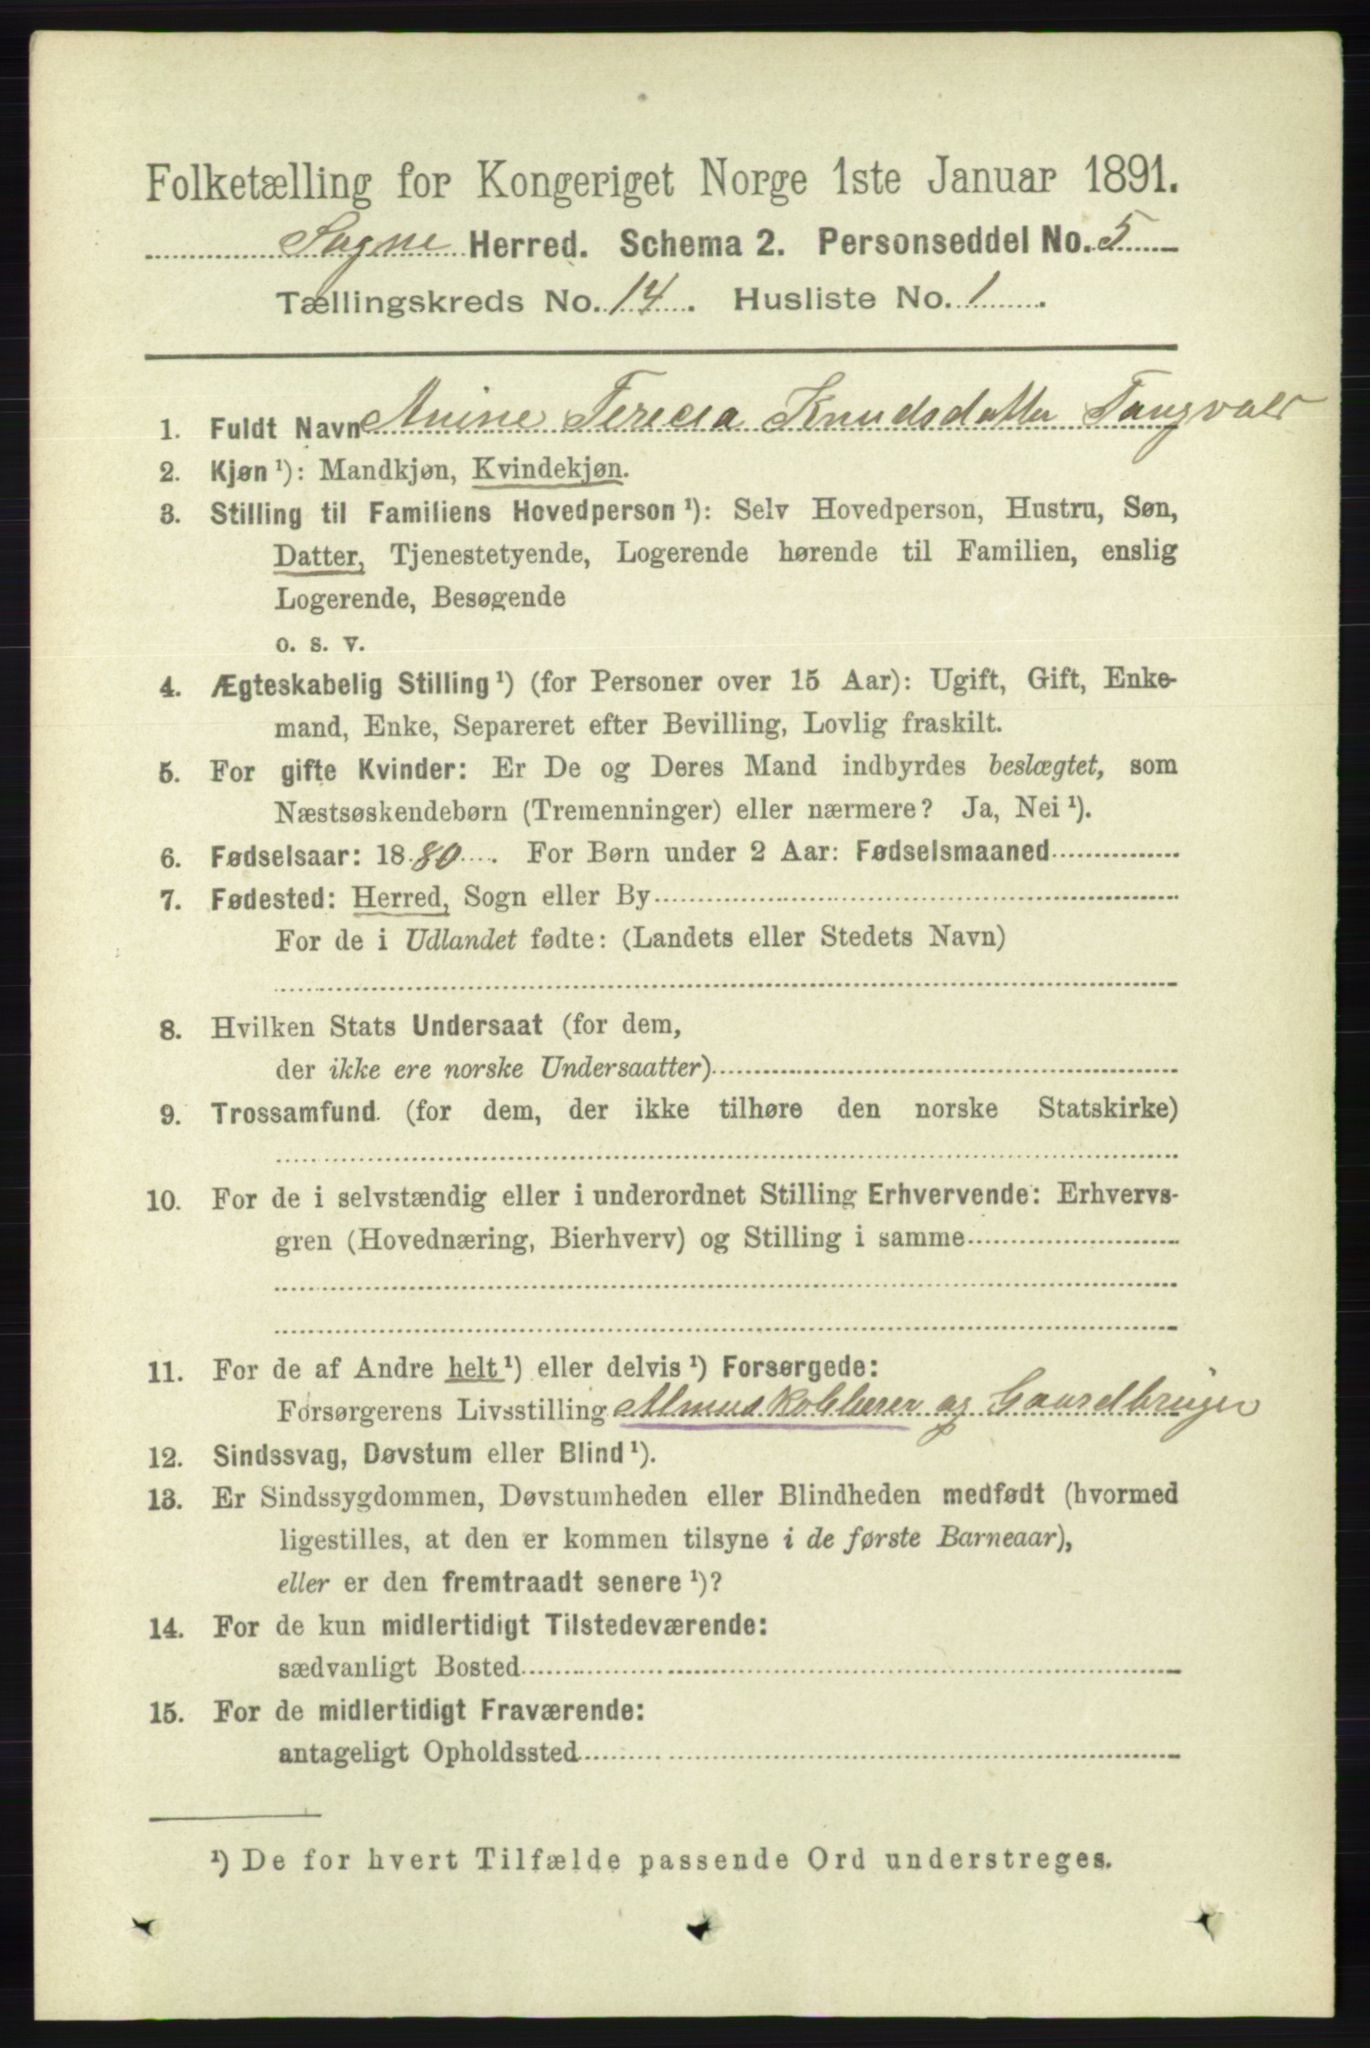 Folketælling for Kongeriget Norge 1ste Januar 1891.
Søgne Herred. Schema 2. Personseddel No. 5
Tællingskreds No. 14. Husliste No. 1.
1. Fuldt Navn Anine Terecia Knudsdatter Tangvald
2. Kjøn ¹): Mandkjøn, Kvindekjøn.
3. Stilling til Familiens Hovedperson ¹): Selv Hovedperson, Hustru, Søn,
Datter, Tjenestetyende, Logerende hørende til Familien, enslig
Logerende, Besøgende
o. s. v.
4. Ægteskabelig Stilling ¹) (for Personer over 15 Aar): Ugift, Gift, Enke-
mand, Enke, Separeret efter Bevilling, Lovlig fraskilt.
5. For gifte Kvinder: Er De og Deres Mand indbyrdes beslægtet, som
Næstsøskendebørn (Tremenninger) eller nærmere? Ja, Nei ¹).
6. Fødselsaar: 1880. For Børn under 2 Aar: Fødselsmaaned
7. Fødested: Herred, Sogn eller By
For de i Udlandet fødte: (Landets eller Stedets Navn)
8. Hvilken Stats Undersaat (for dem,
der ikke ere norske Undersaatter)
9. Trossamfund (for dem, der ikke tilhøre den norske Statskirke)
10. For de i selvstændig eller i underordnet Stilling Erhvervende: Erhvervs-
gren (Hovednæring, Bierhverv) og Stilling i samme
11. For de af Andre helt ¹) eller delvis ¹) Forsørgede:
Forsørgerens Livsstilling og Gaardbruger
12. Sindssvag, Døvstum eller Blind ¹).
13. Er Sindssygdommen, Døvstumheden eller Blindheden medfødt (hvormed
ligestilles, at den er kommen tilsyne i de første Barneaar),
eller er den fremtraadt senere ¹)?
14. For de kun midlertidigt Tilstedeværende:
sædvanligt Bosted
15. For de midlertidigt Fraværende:
antageligt Opholdssted
¹) De for hvert Tilfælde passende Ord understreges.